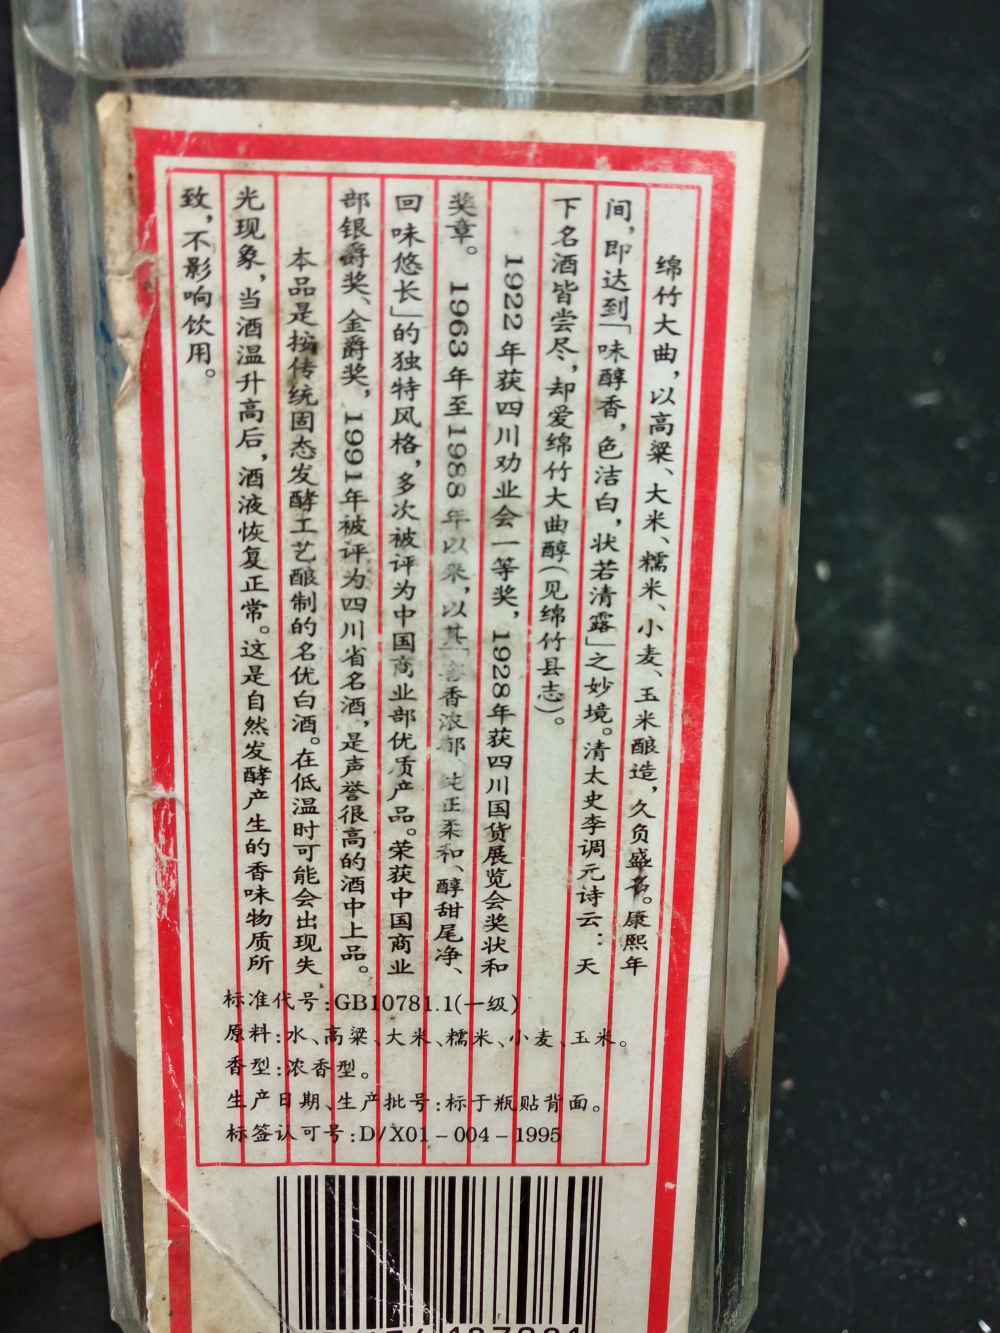 绵竹大曲，以高粱、大米、糯米、小麦、玉米酿造，久负盛名。康熙年
间，即达到「味醇香，色洁白，状若清露」之妙境。清太史李调元诗云：天
下名酒皆尝尽，却爱绵竹大曲醇（见绵竹县志）。
1922年获四川劝业会一等奖，1928年获四川国货展览会奖状和
奖章。1963年至1988年以来，以其「窖香浓郁、纯正柔和、醇甜尾净、
回味悠长」的独特风格，多次被评为中国商业部优质产品。荣获中国商业
部银爵奖、金爵奖，1991年被评为四川省名酒，是声誉很高的酒中上品。
本品是按传统固态发酵工艺酿制的名优白酒。在低温时可能会出现失
光现象，当酒温升高后，酒液恢复正常。这是自然发酵产生的香味物质所
致，不影响饮用。
标准代号:GB10781.1(一级)
原料:水、高粱、大米、糯米、小麦、玉米。
香型:浓香型。
生产日期、生产批号:标于瓶贴背面。
标签认可号:D/X01-004-1995